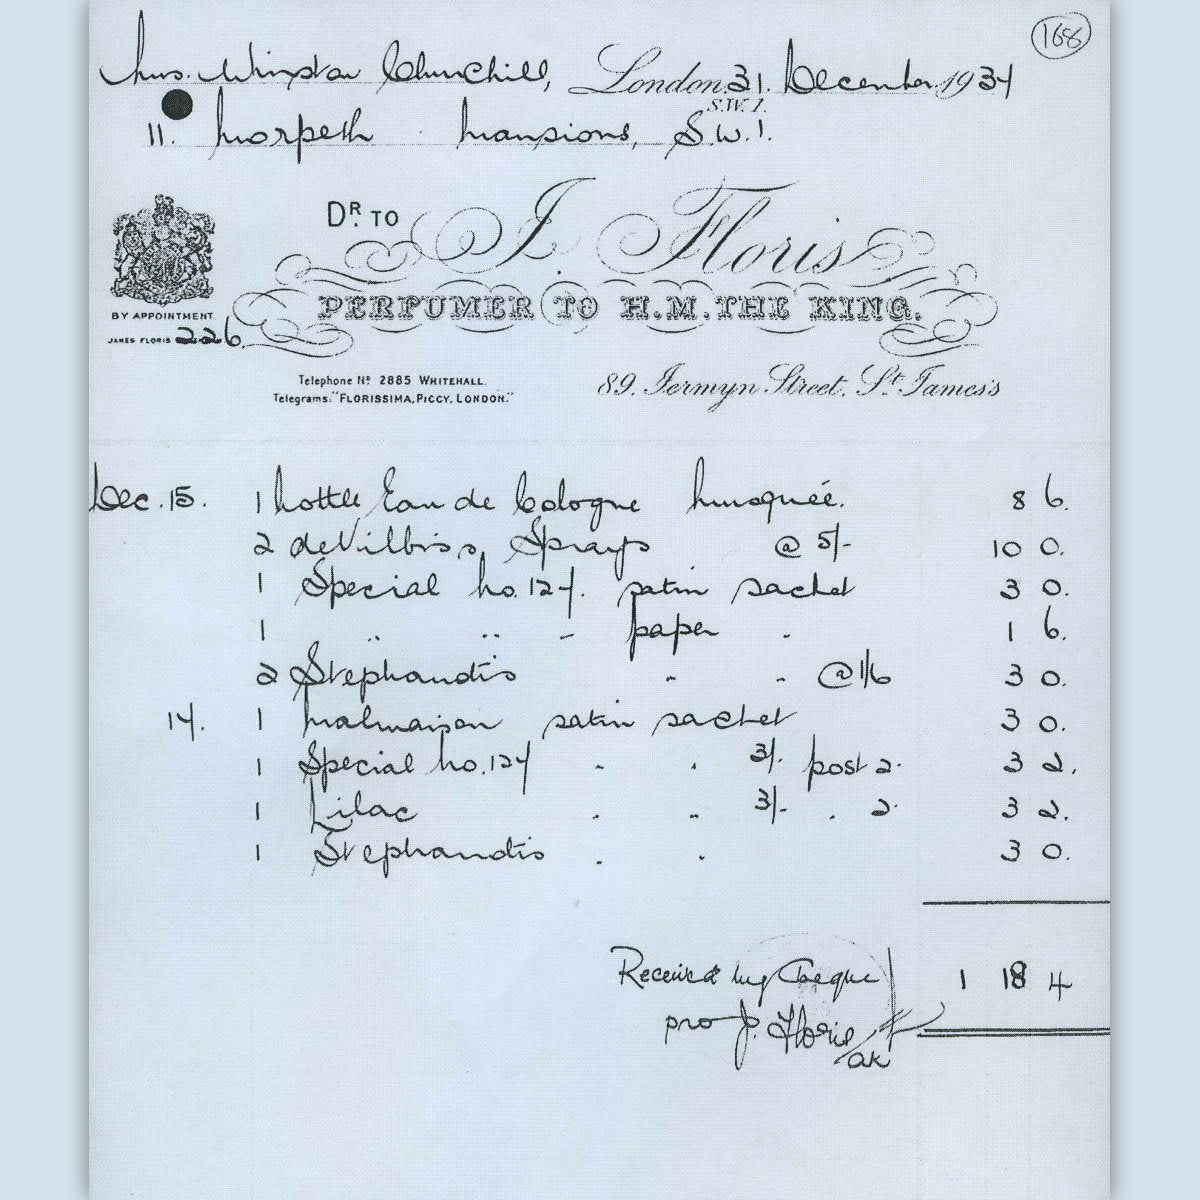 168
Mrs. Winston Churchill, London. 31. December 1934
S.W.1.
11. Morpeth Mansions, S.W.1.
DR. TO J. Floris
PERFUMER TO H.M. THE KING.
BY APPOINTMENT.
JAMES FLORIS 226.
Telephone No 2885 WHITEHALL.
Telegrams: "FLORISSIMA, PICCY, LONDON."
89. Jermyn Street. St. James's
Dec. 15. 1 bottle Eau de Cologne Musquée. 8 6.
2 deVilbiss Sprays @ 5/- 10 0.
1 Special No. 127. satin sachet 3 0.
1 " " - paper - 1 6.
2 Stephanotis " " @ 1/6 3 0.
17. 1 Malmaison satin sachet 3 0.
1 Special No. 127 " " 3/- post 2. 3 2.
1 Lilac " " 3/- . 2. 3 2.
1 Stephanotis " " 3 0.
Received by Cheque 1 18 4
pro J. Floris
/AK